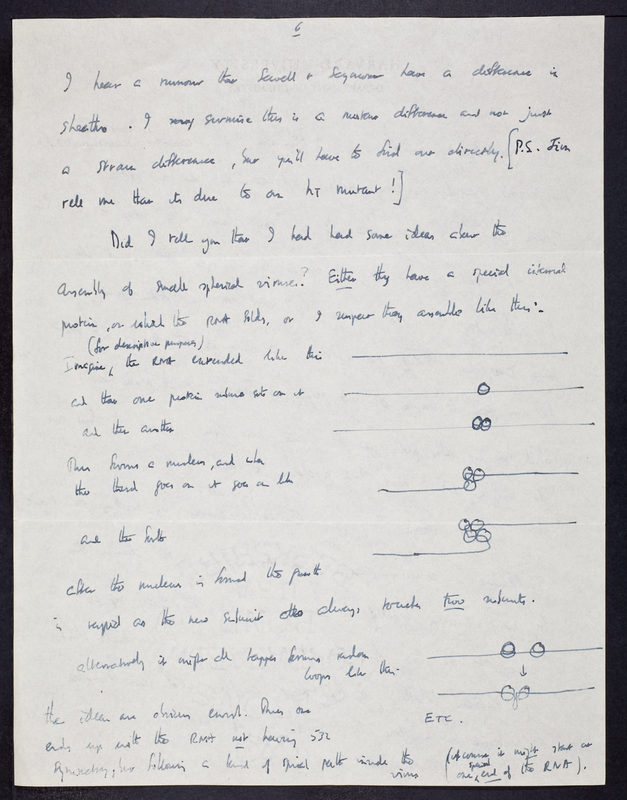 6
I hear a rumour that Sewell + Seymour have a difference in
sheaths. I surmise this is a mutant difference and not just
a strain difference, but you'll have to find out directly. [P.S. Jim
tells me that its due to an h1 mutant!]
Did I tell you that I had had some ideas about the
assembly of small spherical viruses? Either they have a special internal
protein, on which the RNA folds, or I suspect they assemble like this:-
(for descriptive purposes)
Imagine, the RNA extended like this
and that one protein subunit sits on it
and then another
This forms a nucleus, and when
the third goes on it goes on like
and the forth
after the nucleus is formed the growth
is rapid as the new subunit always touches two subunits.
alternatively it might all happen forming random
loops like this-
the ideas are obvious enough. Thus one
ETC.
ends up with the RNA not having 532
symmetry, but following a kind of spiral path inside the
virus
(of course it might start at
one special end of the RNA).